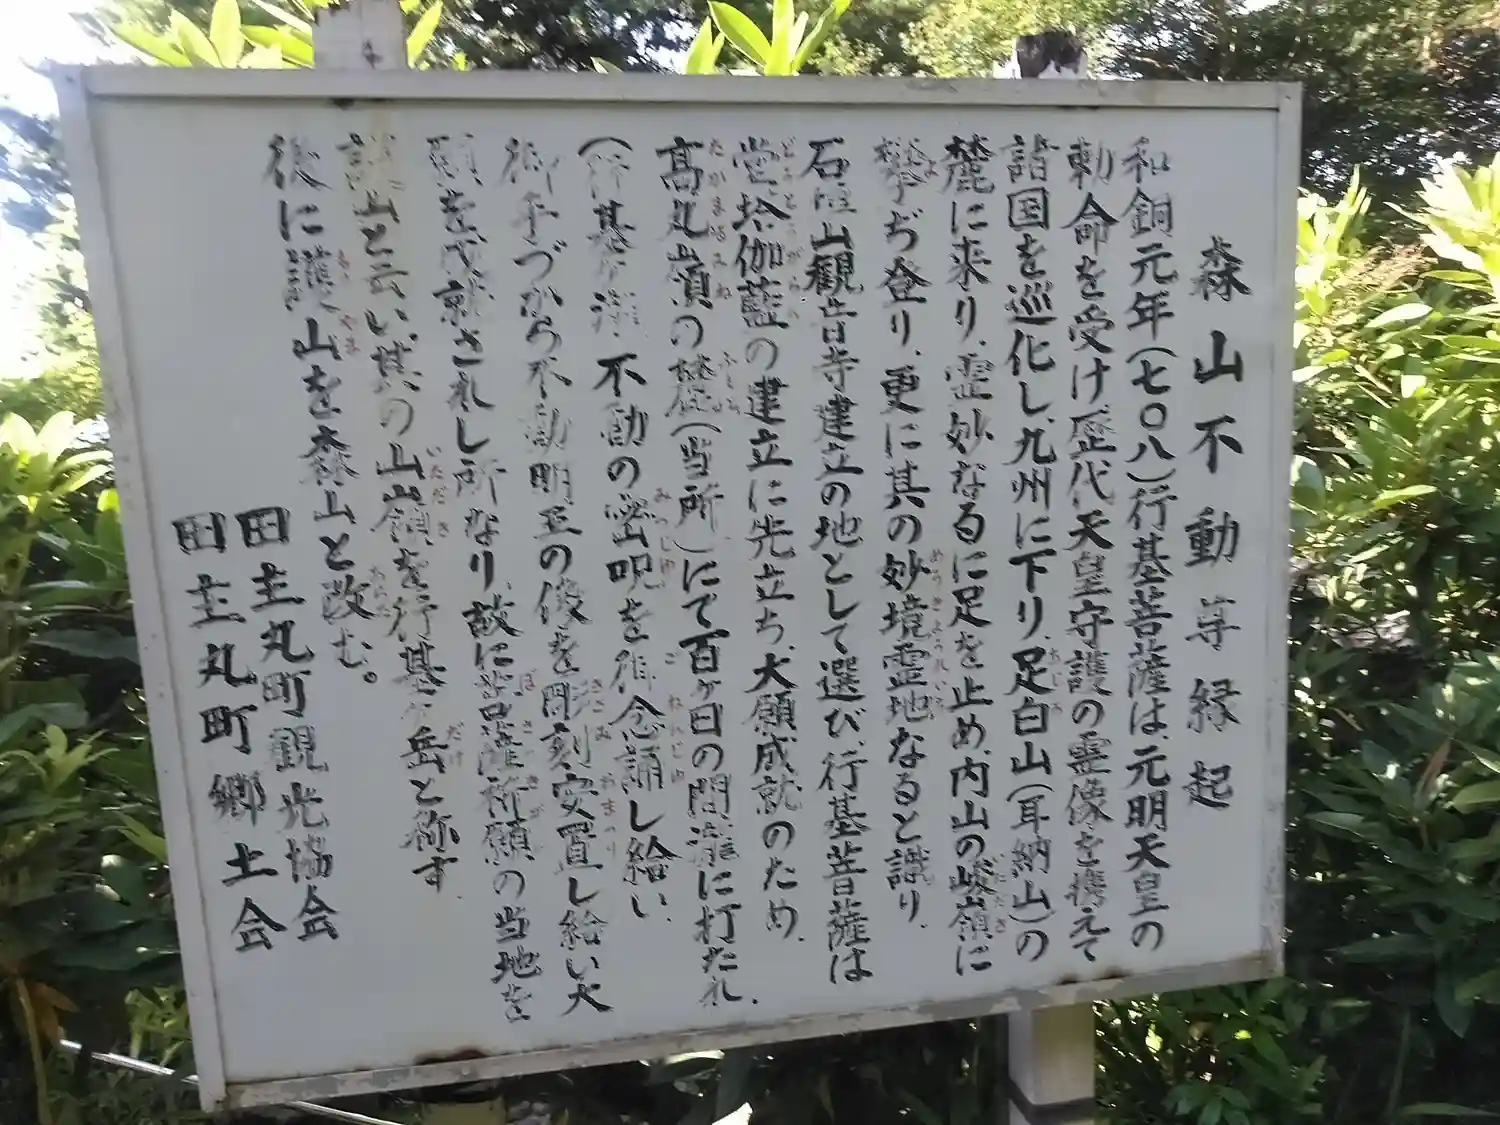 森山不動尊縁起
和銅元年(七〇八)行基菩薩は、元明天皇の
勅命を受け歴代天皇守護の霊像を携えて
諸国を巡化し、九州に下り、足白山(耳納山)の
麓に来り、霊妙なるに足を止め、内山の峻嶺に
攀ぢ登り、更に其の妙境霊地なると識り、
石垣山観音寺建立の地として選び、行基菩薩は
堂塔伽藍の建立に先立ち、大願成就のため、
高丸嶺の麓(当所)にて百ヶ日の間瀧に打たれ、
(行基ヶ瀧)不動の密呪を御念誦し給い、
御手づから不動明王の像を彫刻安置し給い大
願を成就されし所なり、故に菩薩祈願の当地を
護山と云い、其の山嶺を行基ヶ岳と称す、
後に護山を森山と改む。
田主丸町観光協会
田主丸町郷土会